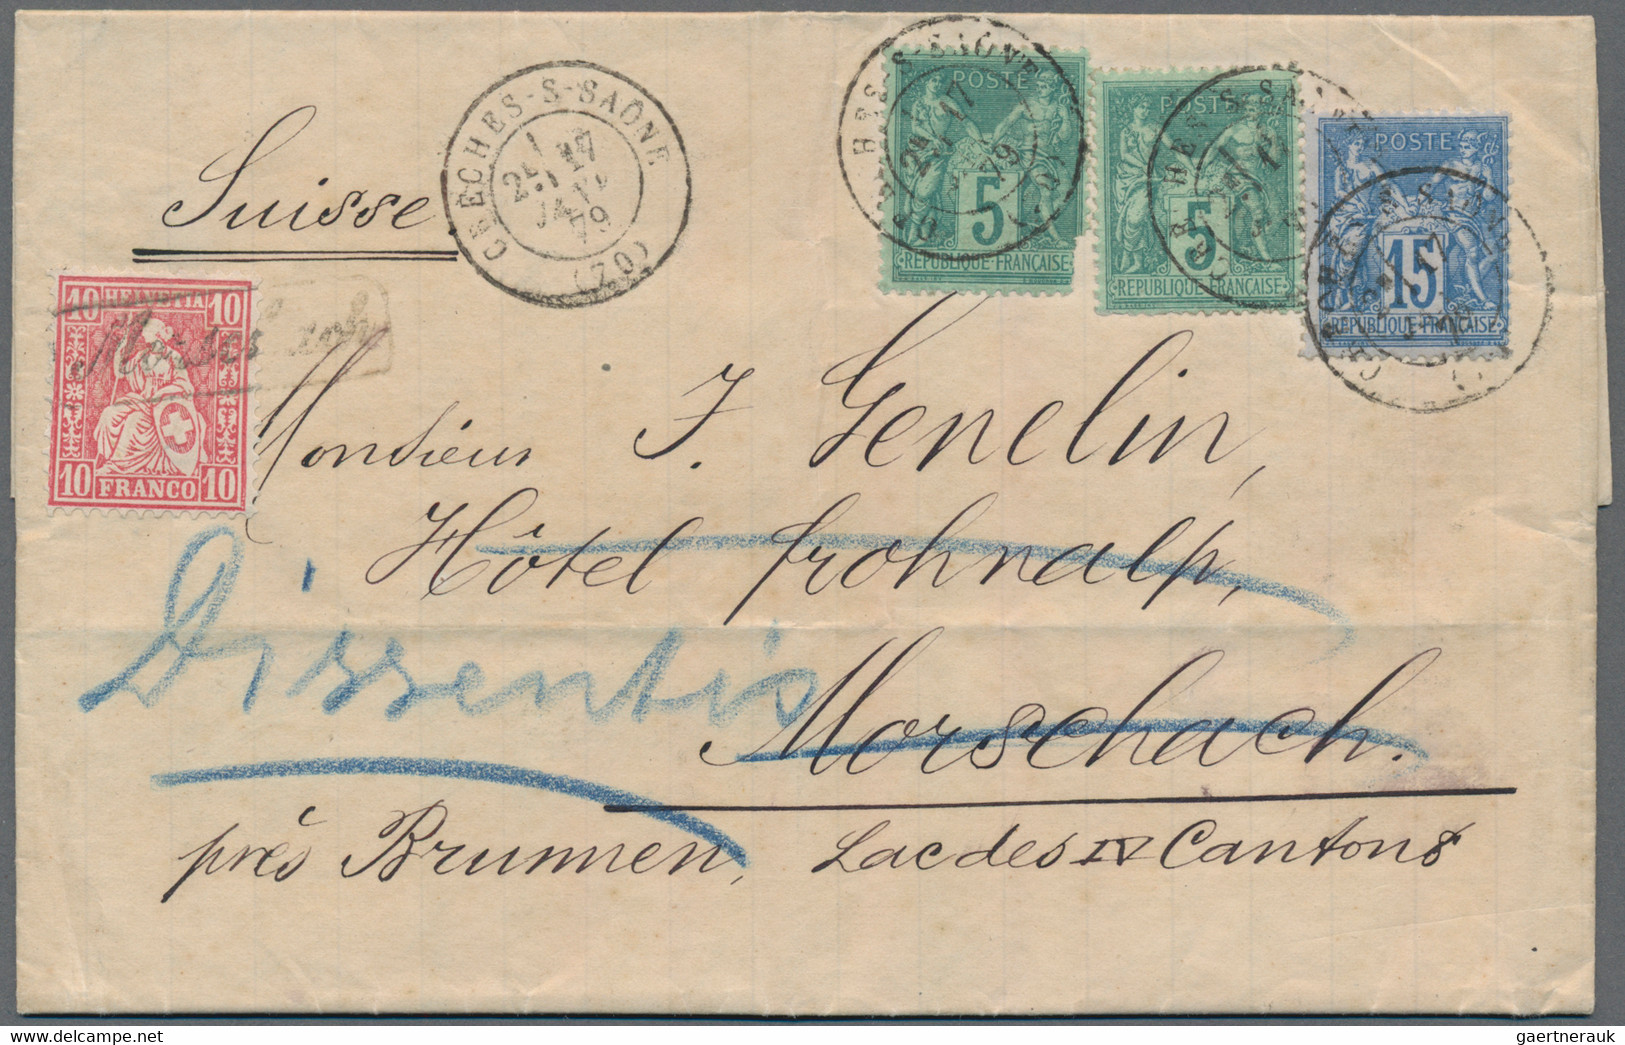 Suisse
CRECHES-S-SAÔNE
17
79
(70)
POSTE
5
RÉPUBLIQUE FRANÇAISE
POSTE
5
RÉPUBLIQUE FRANÇAISE
POSTE
15
RÉPUBLIQUE FRANÇAISE
10 HELVETIA 10
10 FRANCO 10
Monsieur J. Genelin,
Hôtel frohnalp,
Dissentis
Morschach.
près Brunnen, Lac des IV Cantons
delcampe.net
gaertnerauk